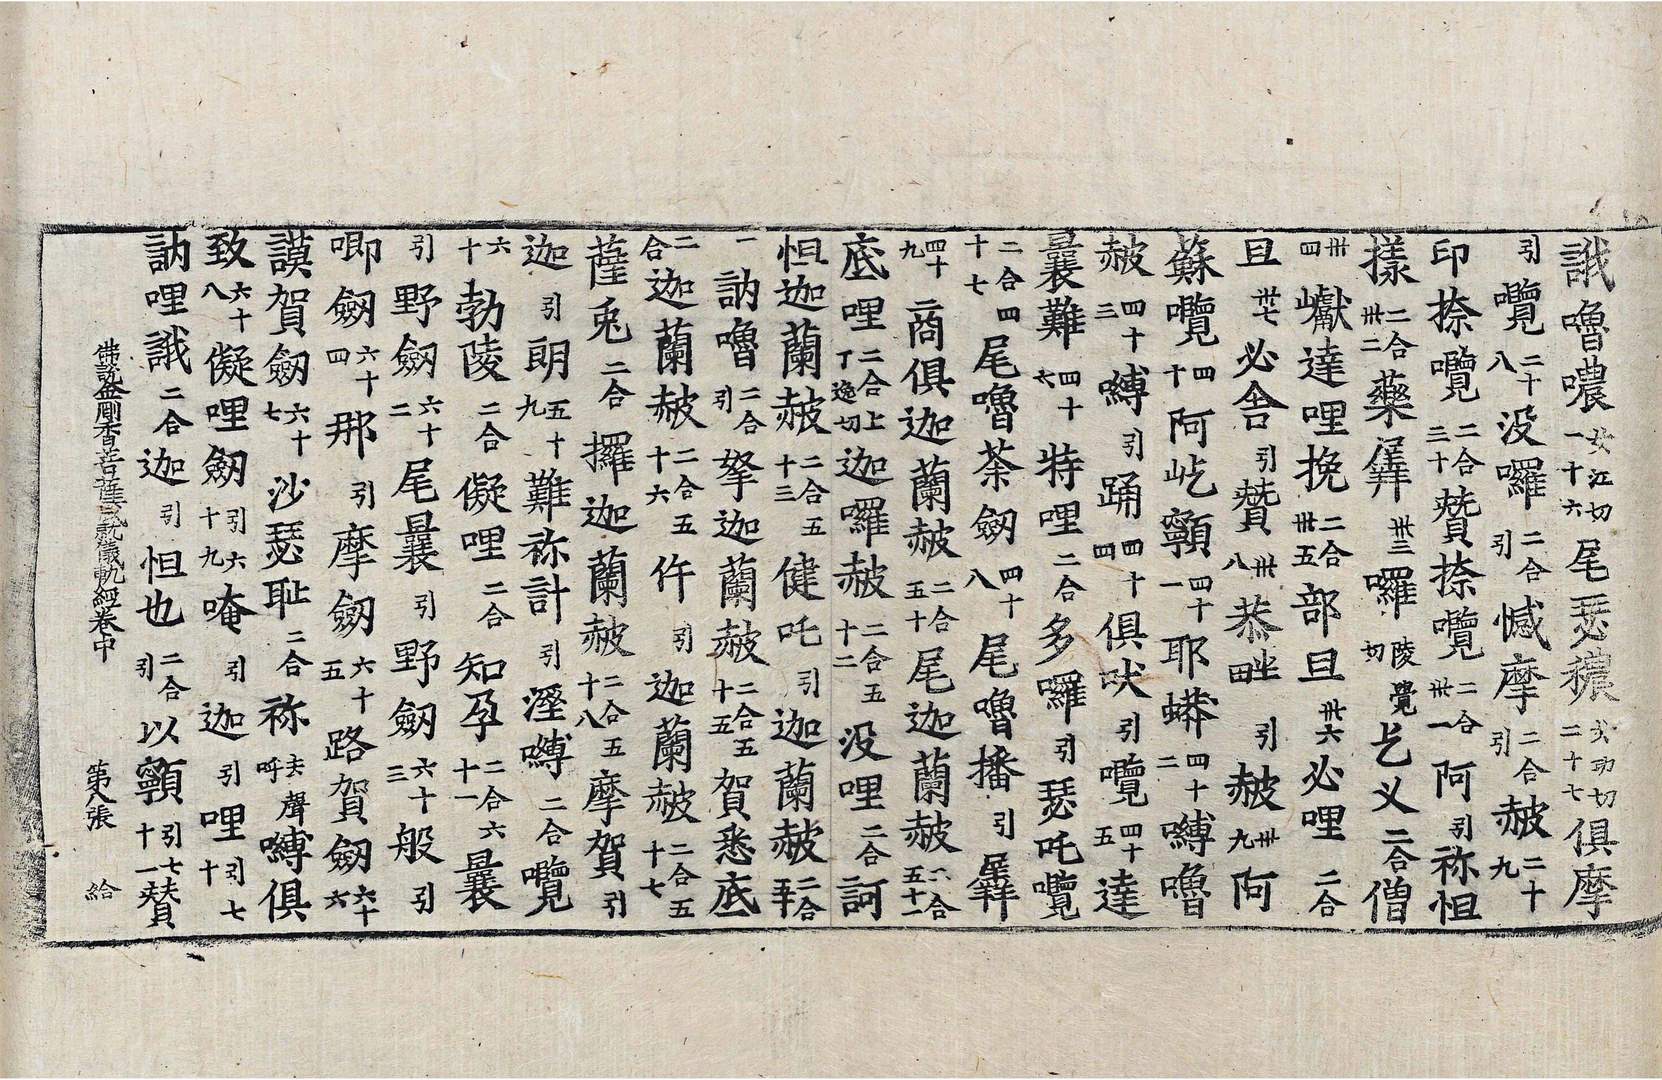 誐嚕噥女江切一十六尾瑟穠二十七俱摩
引囕二十八没囉二合引憾摩二合引赦二十九
印捺囕二合三十贊捺囕二合卅一阿引祢怛
㨾二合卅二藥㞘卅三囉陵覺切乞义二合僧
卅四巘達哩挽二合卅五部旦卅六必哩二合
旦卅七必舍引贊卅八恭坐引赦卅九阿
蘇囕四十阿屹㘄四十一耶蟒四十二嚩嚕
赦四十三嚩引踊四十四俱吠引囕四十五達
曩難四十六特哩二合多囉引瑟吒囕
二合四十七尾嚕荼劒四十八尾嚕播引㞘
四十九商俱迦蘭赦二合五十尾迦蘭赦二合五十一
底哩二合上丁逸切迦囉赦二合五十二没哩二合訶
怛迦蘭赦二合五十三健吒引迦蘭赦二合五十
一訥嚕二合引拏迦蘭赦二合五十五賀悉底
二合迦蘭赦二合五十六仵引迦蘭赦二合五十七
薩兎二合攞迦蘭赦二合五十八摩賀引
迦引朗五十九難祢計引溼嚩二合囕
六十勃陵二合儗哩二合知孕二合六十一曩
引野劒六十二尾曩引野劒六十三般引
唧劒六十四那引摩劒六十五路賀劒六十六
謨賀劒六十七沙瑟耻二合祢去聲呼嚩俱
致六十八儗哩劒引六十九唵引迦引哩引七十
訥哩誐二合迦引怛也二合引以㘄引七十一贊
佛說金剛香菩薩成就儀軌經卷中 第八張 給